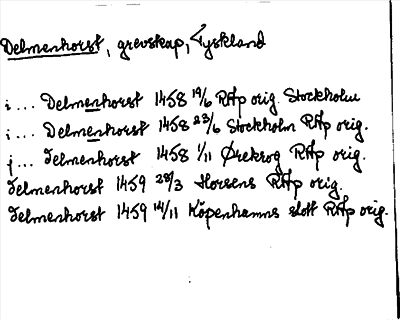 Delmenhorst, grevskap, Tyskland
i... Delmenhorst 1458 19/6 RAp orig. Stockholm
i... Delmenhorst 1458 23/6 Stockholm RAp orig.
j... Telmenhorst 1458 1/11 Ørekrog RAp orig.
Telmenhorst 1459 28/3 Horsens RAp orig.
Telmenhorst 1459 14/11 Köpenhamns slott RAp orig.